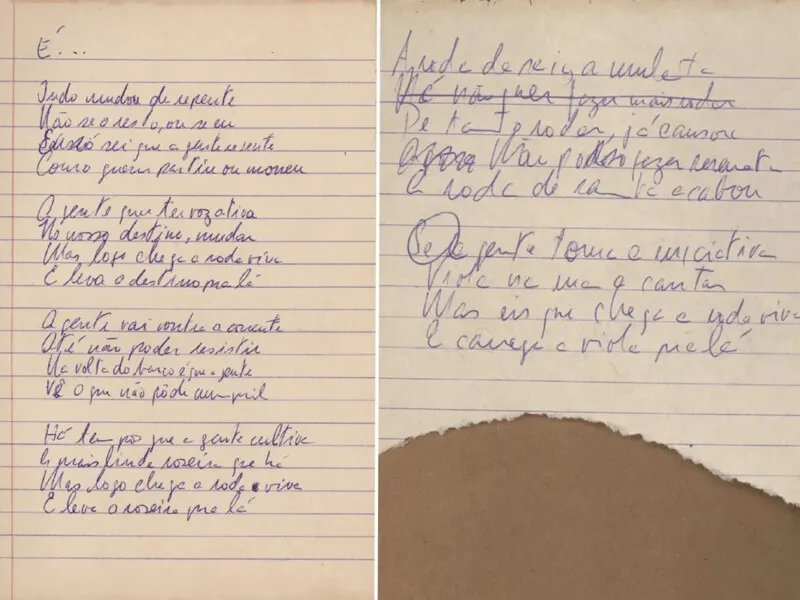 É...
Tudo mudou de repente
Não se o resto, ou se eu
só sei que a gente se sente
Como quem partiu ou morreu
A gente quer ter voz ativa
No nosso destino, mudar
Mas logo chega a roda viva
E leva o destino pra lá
A gente vai contra a corrente
Até não poder resistir
Na volta do barco é que a gente
Vê o que não pôde cumprir
Há tempos que a gente cultiva
A mais linda roseira que há
Mas logo chega a roda viva
E leva a roseira pra lá
A roda de saia mulata
Já não quer fazer mais rodar
De tanto rodar, já cansou
Agora Não posso fazer serenata
A roda de samba acabou
Se a gente toma a iniciativa
Viola na mão a cantar
Mas eis que chega a roda viva
E carrega a viola pra lá